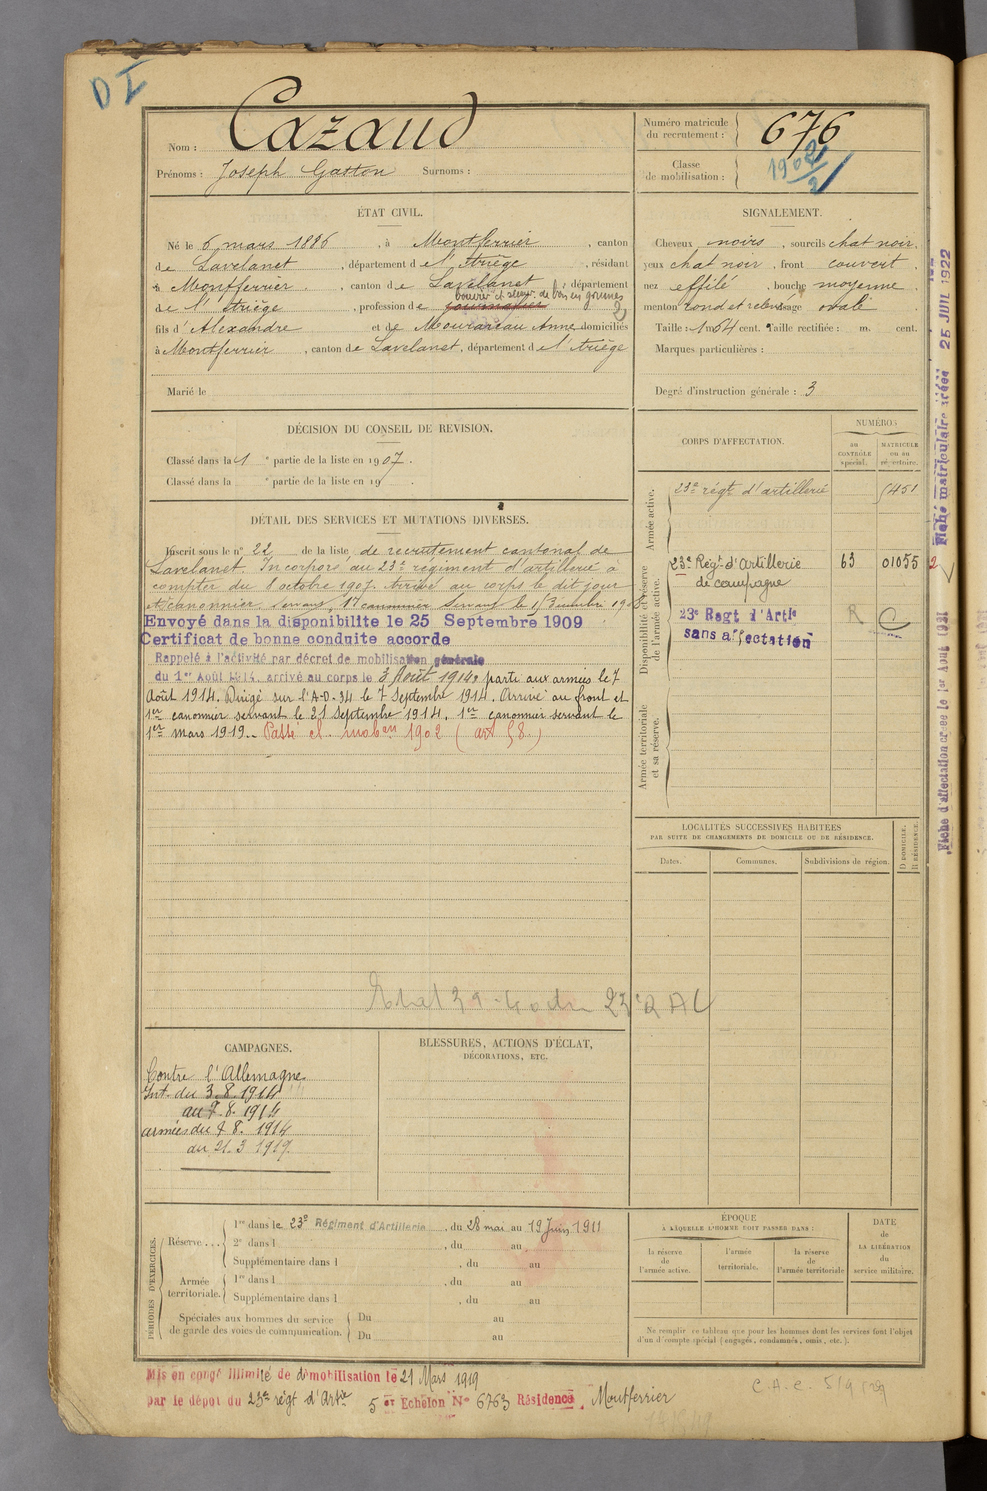 D I
Nom : Cazaud
Prénoms : Joseph Gaston Surnoms :
Numéro matricule du recrutement : 676
Classe de mobilisation : 1902/2
ÉTAT CIVIL.
Né le 6 mars 1886, à Montferrier, canton
de Lavelanet, département de l'Ariège, résidant
à Montferrier, canton de Lavelanet, département
bouvier et de bois en grumes
de l'Ariège, profession de journalier
fils d'Alexandre et de Anne domiciliés
à Montferrier, canton de Lavelanet, département de l'Ariège
Marié le
SIGNALEMENT.
Cheveux noirs, sourcils chat noir,
yeux chat noir, front couvert,
nez effilé, bouche moyenne,
menton rond et relevé visage ovale.
Taille : 1 m 54 cent. Taille rectifiée : m. cent.
Marques particulières :
Degré d'instruction générale : 3
DÉCISION DU CONSEIL DE REVISION.
Classé dans la 1e partie de la liste en 1907.
Classé dans la e partie de la liste en 19 .
DÉTAIL DES SERVICES ET MUTATIONS DIVERSES.
Inscrit sous le n° 22 de la liste de recrutement cantonal de
Lavelanet. Incorporé au 23e régiment d'artillerie à
compter du 8 octobre 1907. Arrivé au corps le dit jour
et 2e canonnier servant, 1er canonnier servant le
Envoyé dans la disponibilite le 25 Septembre 1909
Certificat de bonne conduite accorde
Rappelé à l'activité par décret de mobilisation générale
du 1er Août 1914, arrivé au corps le 3 Août 1914, parti aux armées le 7
Août 1914. Dirigé sur l'A.D. 34 le 7 Septembre 1914. Arrivé au front et
1er canonnier servant le 21 Septembre 1914. 1er canonnier servant le
1er mars 1919. Passé cl. mobon 1902 (art 58)
23e RAC
CORPS D'AFFECTATION.
NUMÉROS
au contrôle spécial.
MATRICULE ou au répertoire.
Armée active.
23e régt d'artillerie 5451
Disponibilité et réserve de l'armée active.
23e Regt d'Artillerie de campagne 63 01055
23e Regt d'Artie R C
sans affectation
Armée territoriale et sa réserve.
LOCALITÉS SUCCESSIVES HABITÉES
PAR SUITE DE CHANGEMENTS DE DOMICILE OU DE RÉSIDENCE.
Dates. Communes. Subdivisions de région. D DOMICILE. R RÉSIDENCE.
Fiche matriculaire créée 25 JUIL 1922
2
Fiche d'affectation créée le 1er Août 1931
CAMPAGNES.
Contre l'Allemagne
Int. du 3.8.1914
au 7.8.1914
armées du 7 8. 1914
au 21.3 1919.
BLESSURES, ACTIONS D'ÉCLAT,
DÉCORATIONS, ETC.
PÉRIODES D'EXERCICES.
Réserve . . . 1re dans le 23e Régiment d'Artillerie, du 28 mai au 19 Juin 1911
2e dans l , du au
Supplémentaire dans l , du au
Armée territoriale. 1re dans l , du au
Supplémentaire dans l , du au
Spéciales aux hommes du service de garde des voies de communication. Du au
Du au
ÉPOQUE
À LAQUELLE L'HOMME DOIT PASSER DANS :
la réserve de l'armée active.
l'armée territoriale.
la réserve de l'armée territoriale
DATE de LA LIBÉRATION du service militaire.
Ne remplir ce tableau que pour les hommes dont les services font l'objet
d'un décompte spécial (engagés, condamnés, omis, etc.).
Mis en congé illimité de démobilisation le 21 Mars 1919
par le dépôt du 23e régt d'Artie 5 er Echelon N° 6763 Résidence, Montferrier
C.A.C.